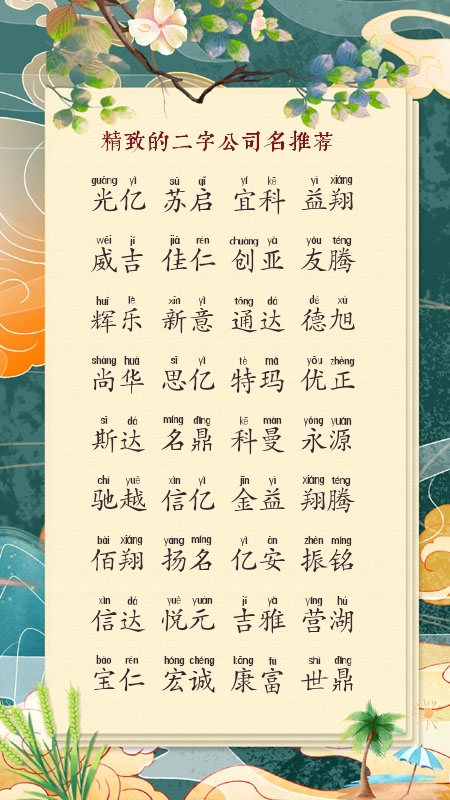 精致的二字公司名推荐
guāng yì sū qǐ yí kē yì xiáng
光亿 苏启 宜科 益翔
wēi jí jiā rén chuàng yà yǒu téng
威吉 佳仁 创亚 友腾
huī lè xīn yì tōng dá dé xù
辉乐 新意 通达 德旭
shàng huá sī yì tè mǎ yōu zhèng
尚华 思亿 特玛 优正
sī dá míng dǐng kē màn yǒng yuán
斯达 名鼎 科曼 永源
chí yuè xìn yì jīn yì xiáng téng
驰越 信亿 金益 翔腾
bǎi xiáng yáng míng yì ān zhèn míng
佰翔 扬名 亿安 振铭
xìn dá yuè yuán jí yǎ yíng hú
信达 悦元 吉雅 营湖
bǎo rén hóng chéng kāng fù shì dǐng
宝仁 宏诚 康富 世鼎